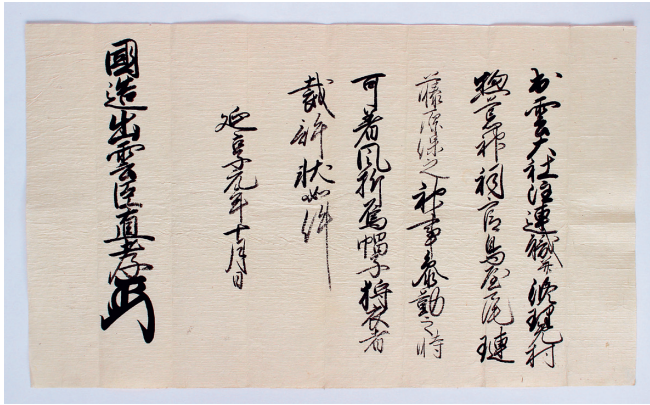 出雲大社注連職并修理免村
惣荒神祠官鳥屋尾璉
藤原保之神事参勤之時
可著風折烏帽子狩衣者
裁許状如件
延享元年十月日
國造出雲臣直孝